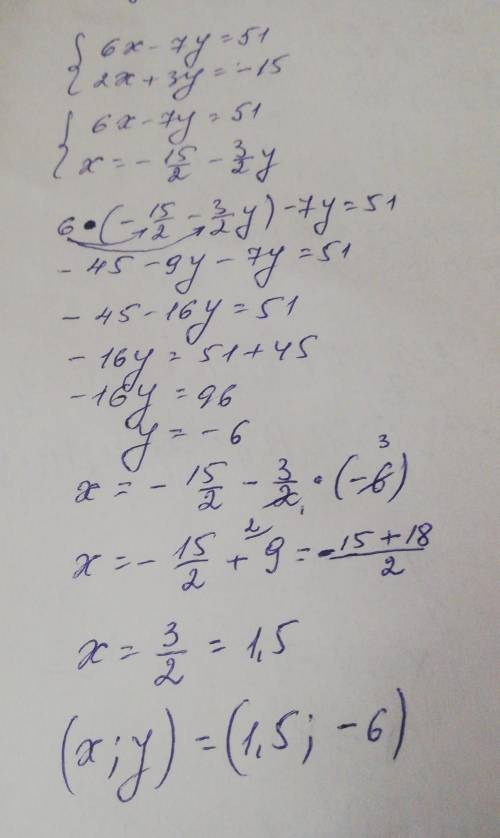 { 6x - 7y = 51
2x + 3y = -15
{ 6x - 7y = 51
x = - 15/2 - 3/2 y
6 • (- 15/2 - 3/2 y) - 7y = 51
- 45 - 9y - 7y = 51
- 45 - 16y = 51
- 16y = 51 + 45
- 16y = 96
y = - 6
x = - 15/2 - 3/2 1 • (-6) 3
x = - 15/2 + 9 2 = -15 + 18/2
x = 3/2 = 1,5
(x; y) = (1,5; -6)